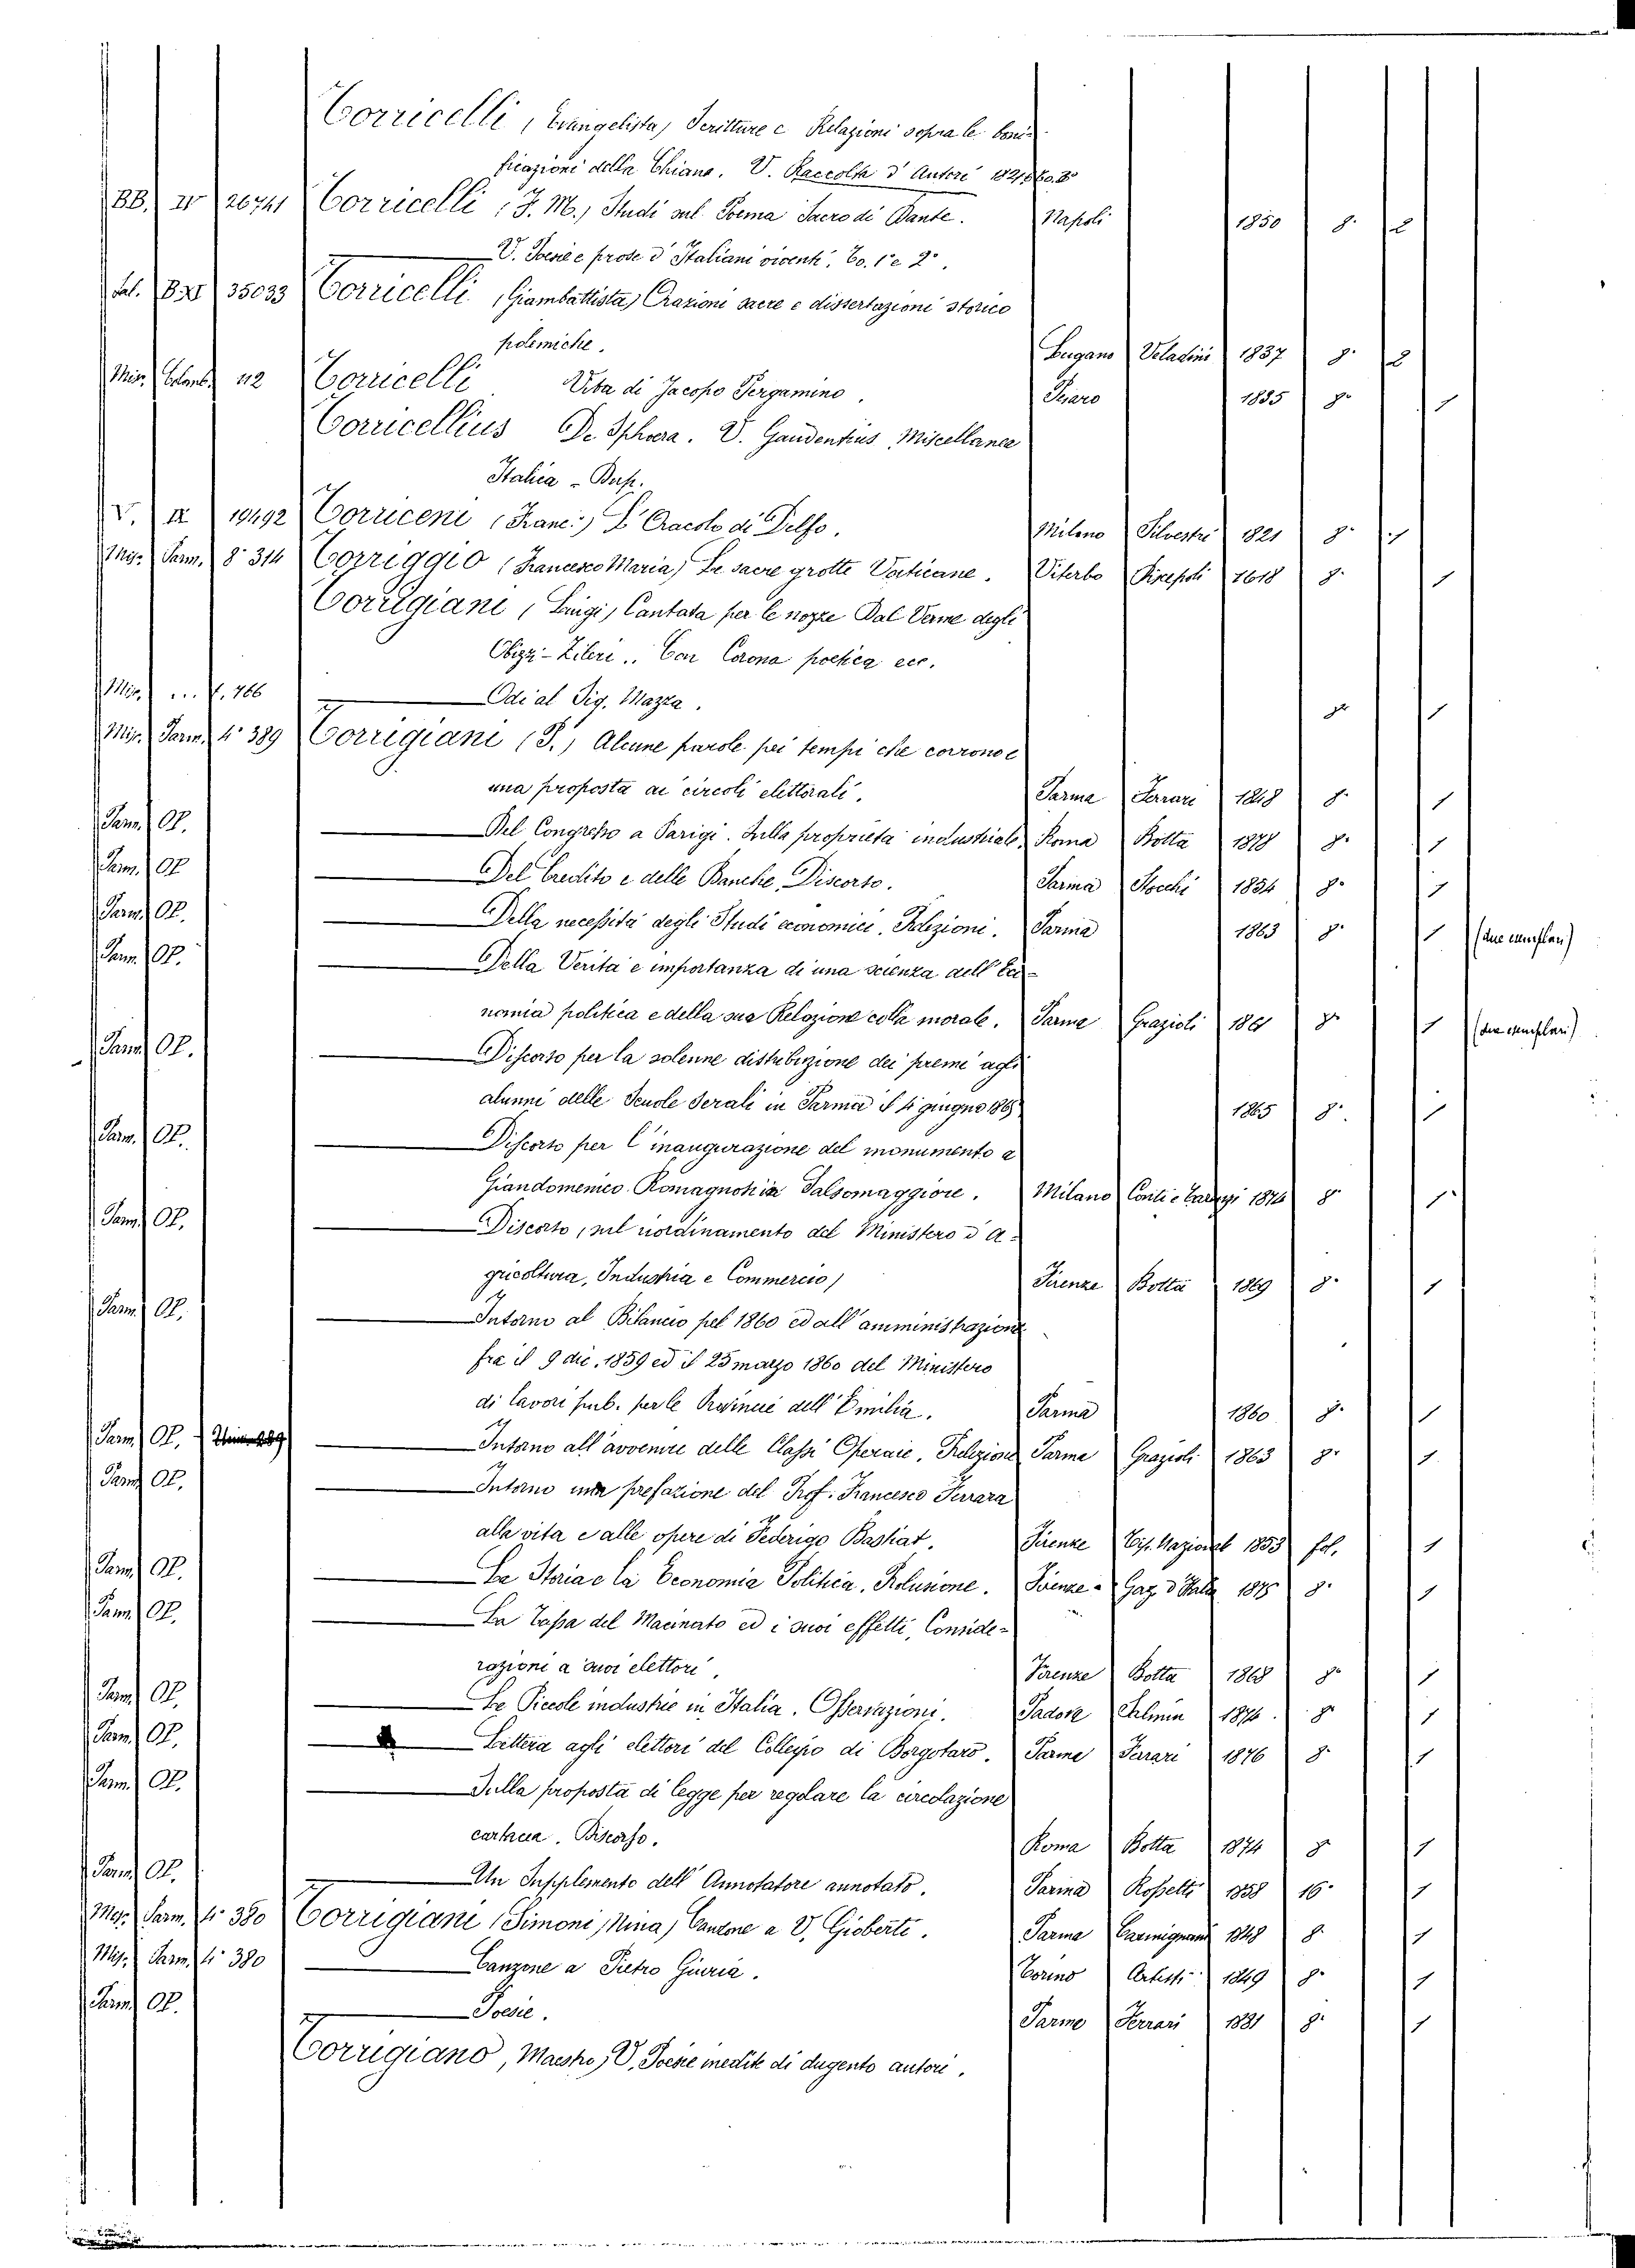 Torricelli (Evangelista) Scritture e Relazioni sopra le boni-
ficazioni della Chiana. V. Raccolta d'Autori
BB. IV 26741 Torricelli (F. M.) Studi sul Poema Sacro di Dante. Napoli 1850 8° 2
V. Poesie e prose d'Italiani viventi. To. 1° e 2°.
Sal. B.XI 35033 Torricelli (Giambattista) Orazioni sacre e dissertazioni storico
polemiche. Lugano Veladini 1837 8° 2
Misc. 112 Torricelli Vita di Jacopo Pergamino. Pesaro 1835 8° 1
Torricellius De Sphoera. V. Gaudentius Miscellanea
Italica - Burp.
V. IX 19492 Torriceni (Franc.) L'Oracolo di Delfo. Milano Silvestri 1821 8° 1
Misc. Parm. 8° 314 Torriggio (Francesco Maria) Le sacre grotte Vaticane. Viterbo 1618 8° 1
Torrigiani (Luigi) Cantata per le nozze Dal Verme degli
Obizzi-Zileri.. Con Corona poetica ecc.
Misc. ... f. 766 Odi al Sig. Mazza. 8° 1
Misc. Parm. 4° 389 Torrigiani (P.) Alcune parole pei tempi che corrono e
una proposta ai circoli elettorali. Parma Ferrari 1848 8° 1
Parm. OP. Del Congresso a Parigi. Sulla proprietà industriale. Roma Botta 1878 8° 1
Parm. OP. Del Credito e delle Banche, Discorso. Parma Stocchi 1854 8° 1
Parm. OP. Della necessità degli Studi economici. Prelezioni. Parma 1863 8° 1 (due esemplari)
Parm. OP. Della Verità e importanza di una scienza dell'Eco-
nomia politica e della sua Relazione colla morale. Parma Grazioli 1861 8° 1 (due esemplari)
Parm. OP. Discorso per la solenne distribuzione dei premi agli
alunni delle Scuole Serali in Parma il 4 giugno 1865 1865 8° 1
Parm. OP. Discorso per l'inaugurazione del monumento a
Giandomenico Romagnosi in Salsomaggiore. Milano 1874 8° 1
Parm. OP. Discorso, sul riordinamento del Ministero d'A-
gricoltura, Industria e Commercio) Firenze Botta 1869 8° 1
Parm. OP. Intorno al Bilancio pel 1860 ed all'amministrazione
fra il 9 dic. 1859 ed il 25 marzo 1860 del Ministero
di lavori pub. per le Provincie dell'Emilia. Parma 1860 8° 1
Parm. OP. Intorno all'avvenire delle Classi Operaie. Prelezione Parma Grazioli 1863 8° 1
Parm. OP. Intorno una prefazione del Prof. Francesco Ferrara
alla vita e alle opere di Federigo Bastiat. Firenze Tip. Nazionale 1853 fol. 1
Parm. OP. La Storia e la Economia Politica. Prolusione. Firenze Gaz. d'Italia 1875 8° 1
Parm. OP. La Tassa del Macinato ed i suoi effetti, Conside-
razioni a' suoi elettori. Firenze Botta 1868 8° 1
Parm. OP. Le Piccole industrie in Italia. Osservazioni. Padova Salmin 1876 8° 1
Parm. OP. Lettera agli elettori del Collegio di Borgotaro. Parma Ferrari 1876 8° 1
Parm. OP. Sulla proposta di legge per regolare la circolazione
cartacea. Discorso. Roma Botta 1874 8° 1
Parm. OP. Un Supplemento dell'Annotatore annotato. Parma Rossetti 1858 16° 1
Misc. Parm. 4° 380 Torrigiani (Simoni, Nina) Canzone a V. Gioberti. Parma Carmignani 1848 8° 1
Misc. Parm. 4° 380 Canzone a Pietro Giuria. Torino Artisti 1849 8° 1
Parm. OP. Poesie. Parma Ferrari 1881 8° 1
Torrigiano, Maestro, V. Poesie inedite di dugento autori.